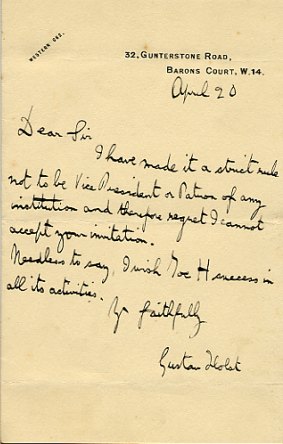 WESTERN 098.
32, GUNTERSTONE ROAD,
BARONS COURT, W.14.
April 20
Dear Sir
I have made it a strict rule
not to be Vice President or Patron of any
institution and therefore regret I cannot
accept your invitation.
Needless to say, I wish Toc H success in
all its activities.
Yrs faithfully
Gustav Holst